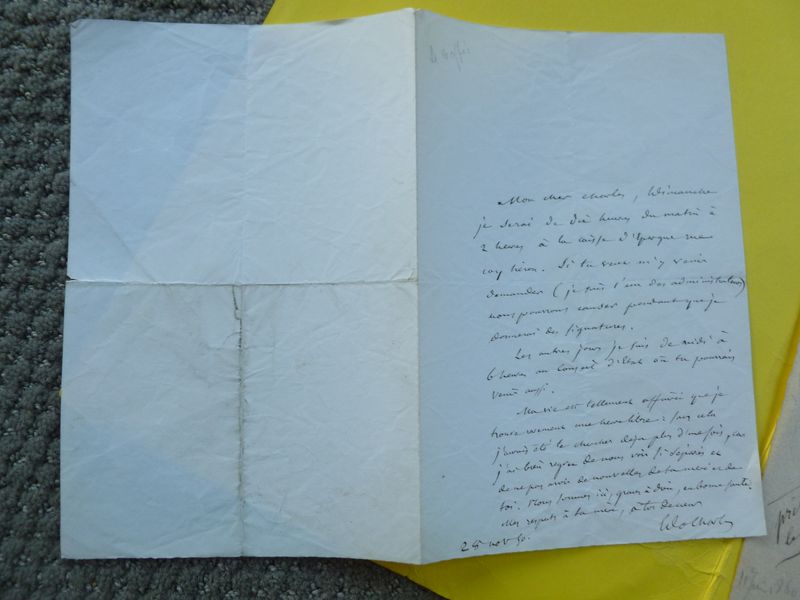 Mon cher Charles, Dimanche
je serai de dix heures du matin à
2 heures à la caisse d'Epargne rue
coq héron. Si tu veux m'y venir
demander (je suis l'un des administrateurs)
nous pourrons causer pendant que je
donnerai des signatures.
Les autres jours je suis de midi à
6 heures au conseil d'Etat où tu pourrais
venir aussi.
Ma vie est tellement affairée que je
trouve rarement une heure libre : sans cela
j'aurais été te chercher déja plus d'une fois, car
j'ai bien regret de nous voir si séparés et
de ne pas avoir de nouvelles de ta mère et de
toi. Nous sommes ici, grâce à Dieu, en bonne santé.
Mes respects à ta mère, à toi de cœur
25 nov 50.